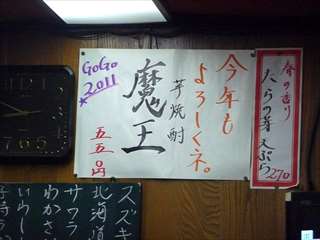 GoGo
2011
今年も
よろしくネ。
芋焼酎
魔王
五五〇円
春の香り
たらの芽天ぷら
270
スズキ
北海道
サワラ
わかさ
いわし